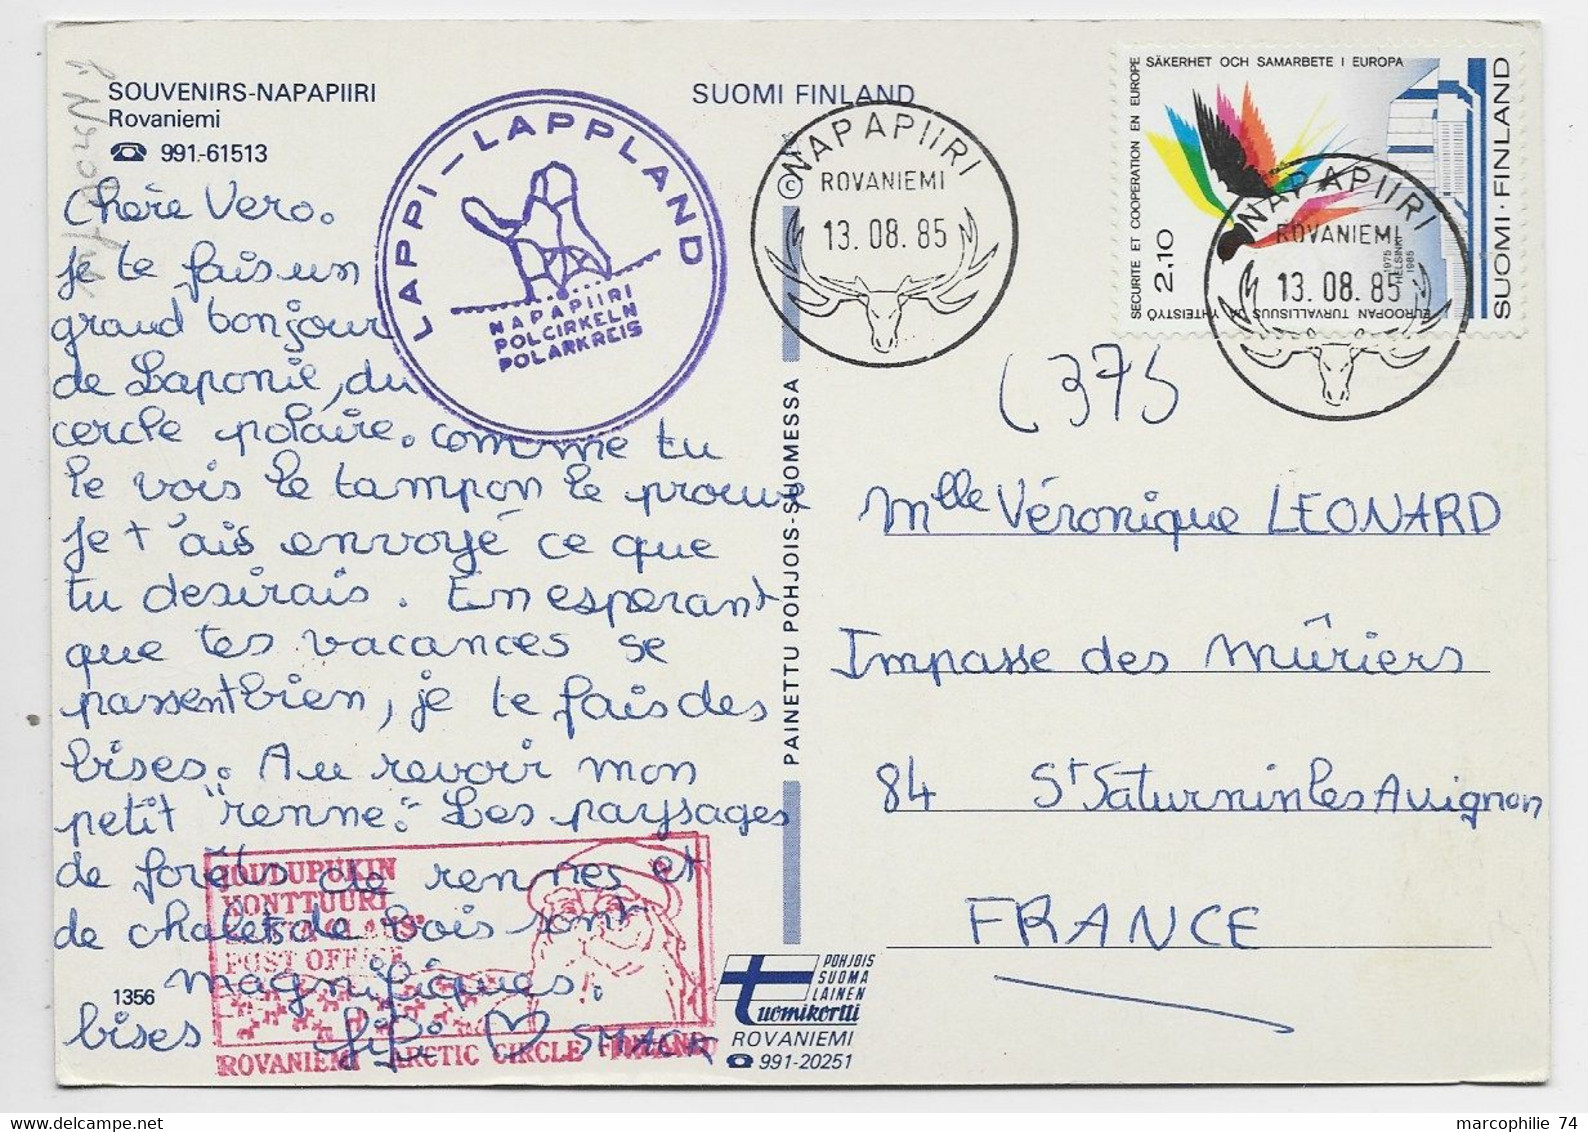 SOUVENIRS-NAPAPIIRI
Rovaniemi
☎ 991-61513
SUOMI FINLAND
Chère Vero.
Je te fais un
grand bonjour
de Laponie, du
cercle polaire. comme tu
le vois le tampon le prouve
Je t'ais envoyé ce que
tu desirais. En esperant
que tes vacances se
passent bien, je te fais des
bises. Au revoir mon
petit "renne". Les paysages
de forêts de rennes et
de chalets de bois sont
magnifiques.
bises fifi ♡ SMACK
1356
LAPPI – LAPPLAND
NAPAPIIRI
POLCIRKELN
POLARKREIS
JOULUPUKIN
KONTTUURI
POST OFFICE
ROVANIEMI ARCTIC CIRCLE FINLAND
© PAINETTU POHJOIS-SUOMESSA
NAPAPIIRI
ROVANIEMI
13.08.85
SÄKERHET OCH SAMARBETE I EUROPA
SECURITE ET COOPERATION EN EUROPE
EUROOPAN TURVALLISUUS JA YHTEISTYÖ
2,10
1975 1985
HELSINKI
SUOMI·FINLAND
NAPAPIIRI
ROVANIEMI
13.08.85
Mlle Véronique LEONARD
Impasse des Mûriers
84 St Saturnin les Avignon
FRANCE
POHJOIS
SUOMA
LAINEN
tuomikortti
ROVANIEMI
☎ 991-20251
marcophilie 74